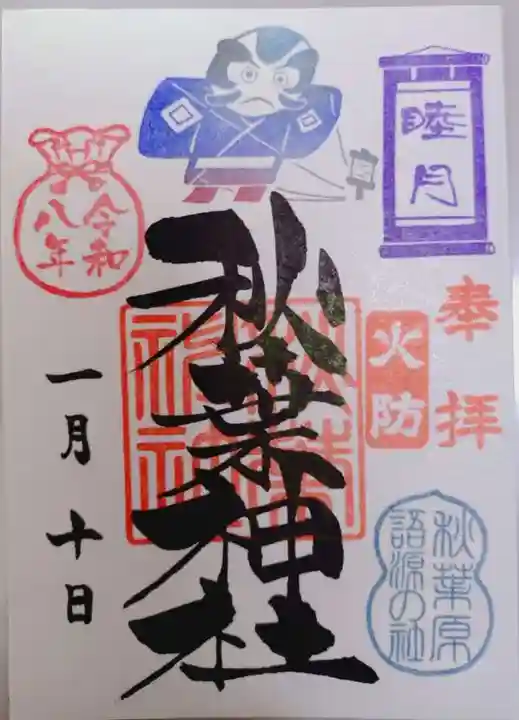 睦月
奉拝
火防
秋葉原
語源の社
秋葉神社
秋葉神社
令和
八年
一月十日